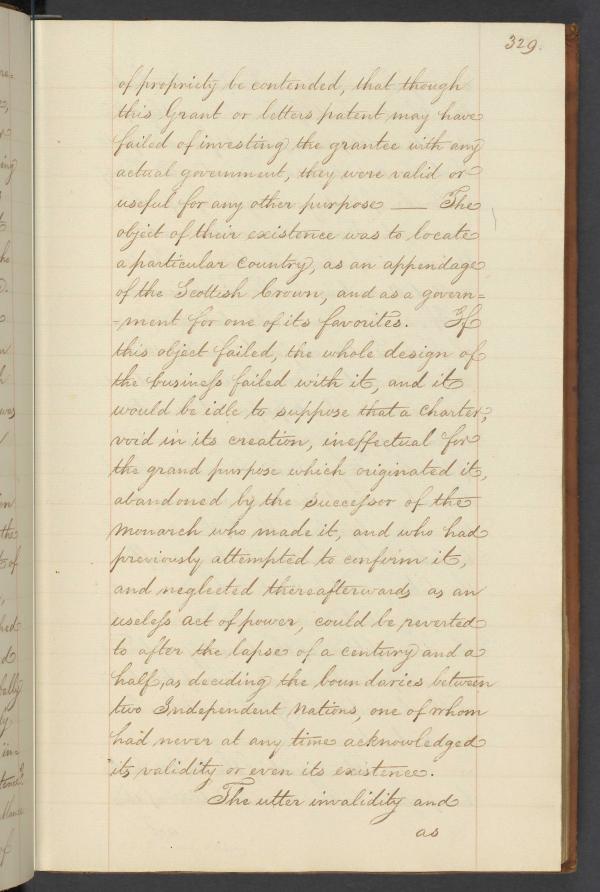 329.
of propriety be contended, that though
this Grant or letters patent may have
failed of investing the grantee with any
actual government, they were valid or
useful for any other purpose — The
object of their existence was to locate
a particular Country, as an appendage
of the Scottish Crown, and as a govern=
=ment for one of its favorites. If
this object failed, the whole design of
the business failed with it, and it
would be idle to suppose that a Charter,
void in its creation, ineffectual for
the grand purpose which originated it,
abandoned by the successor of the
Monarch who made it, and who had
previously attempted to confirm it,
and neglected thereafterwards as an
useless act of power, could be reverted
to after the lapse of a century and a
half, as deciding the boundaries between
two Independent Nations, one of whom
had never at any time acknowledged
its validity or even its existence.
The utter invalidity and
as